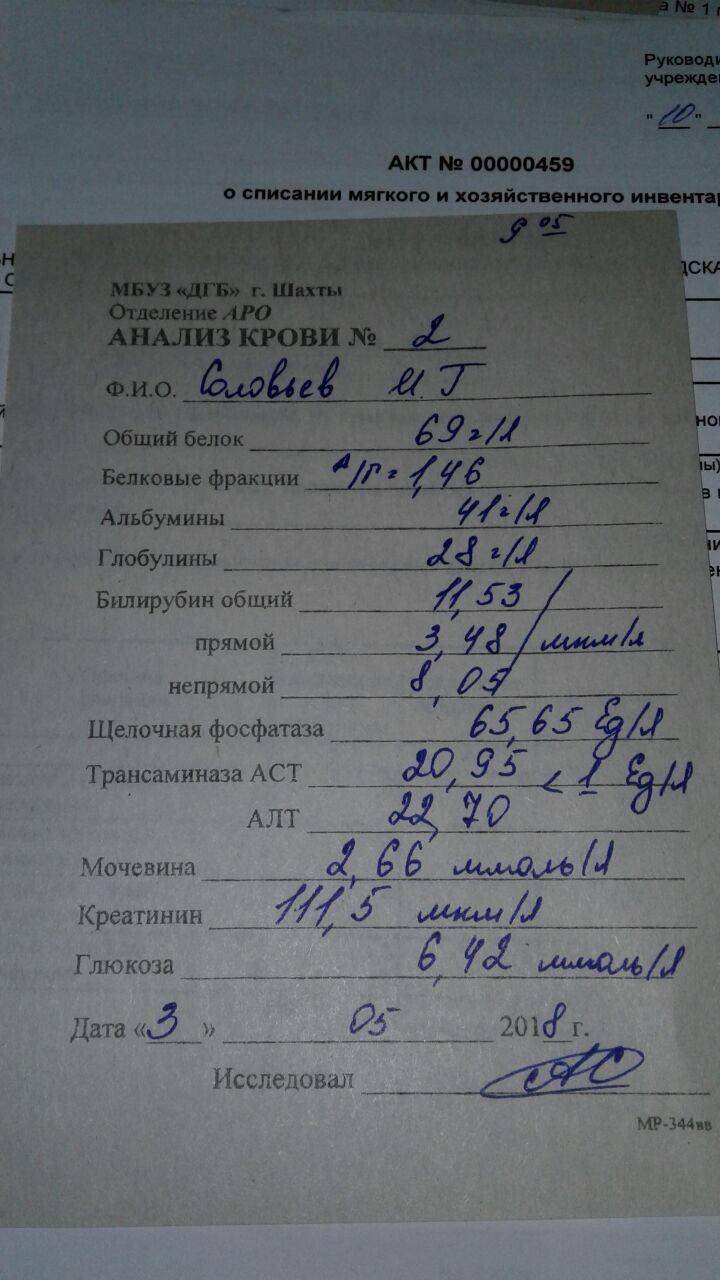 а № 1
Руководи
учрежде
"10"
АКТ № 00000459
о списании мягкого и хозяйственного инвентар
9 05
МБУЗ «ДГБ» г. Шахты
Отделение АРО
АНАЛИЗ КРОВИ № 2
Ф.И.О. Соловьев И. Г
Общий белок 69 г/л
Белковые фракции А/Г = 1,46
Альбумины 41 г/л
Глобулины 28 г/л
Билирубин общий 11,53
прямой 3,48 мкм/л
непрямой 8,05
Щелочная фосфатаза 65,65 Ед/л
Трансаминаза АСТ 20,95 < 1 Ед/л
АЛТ 22,70
Мочевина 2,66 ммоль/л
Креатинин 111,5 мкм/л
Глюкоза 6,42 ммоль/л
Дата «3» 05 2018 г.
Исследовал
МР-344вв